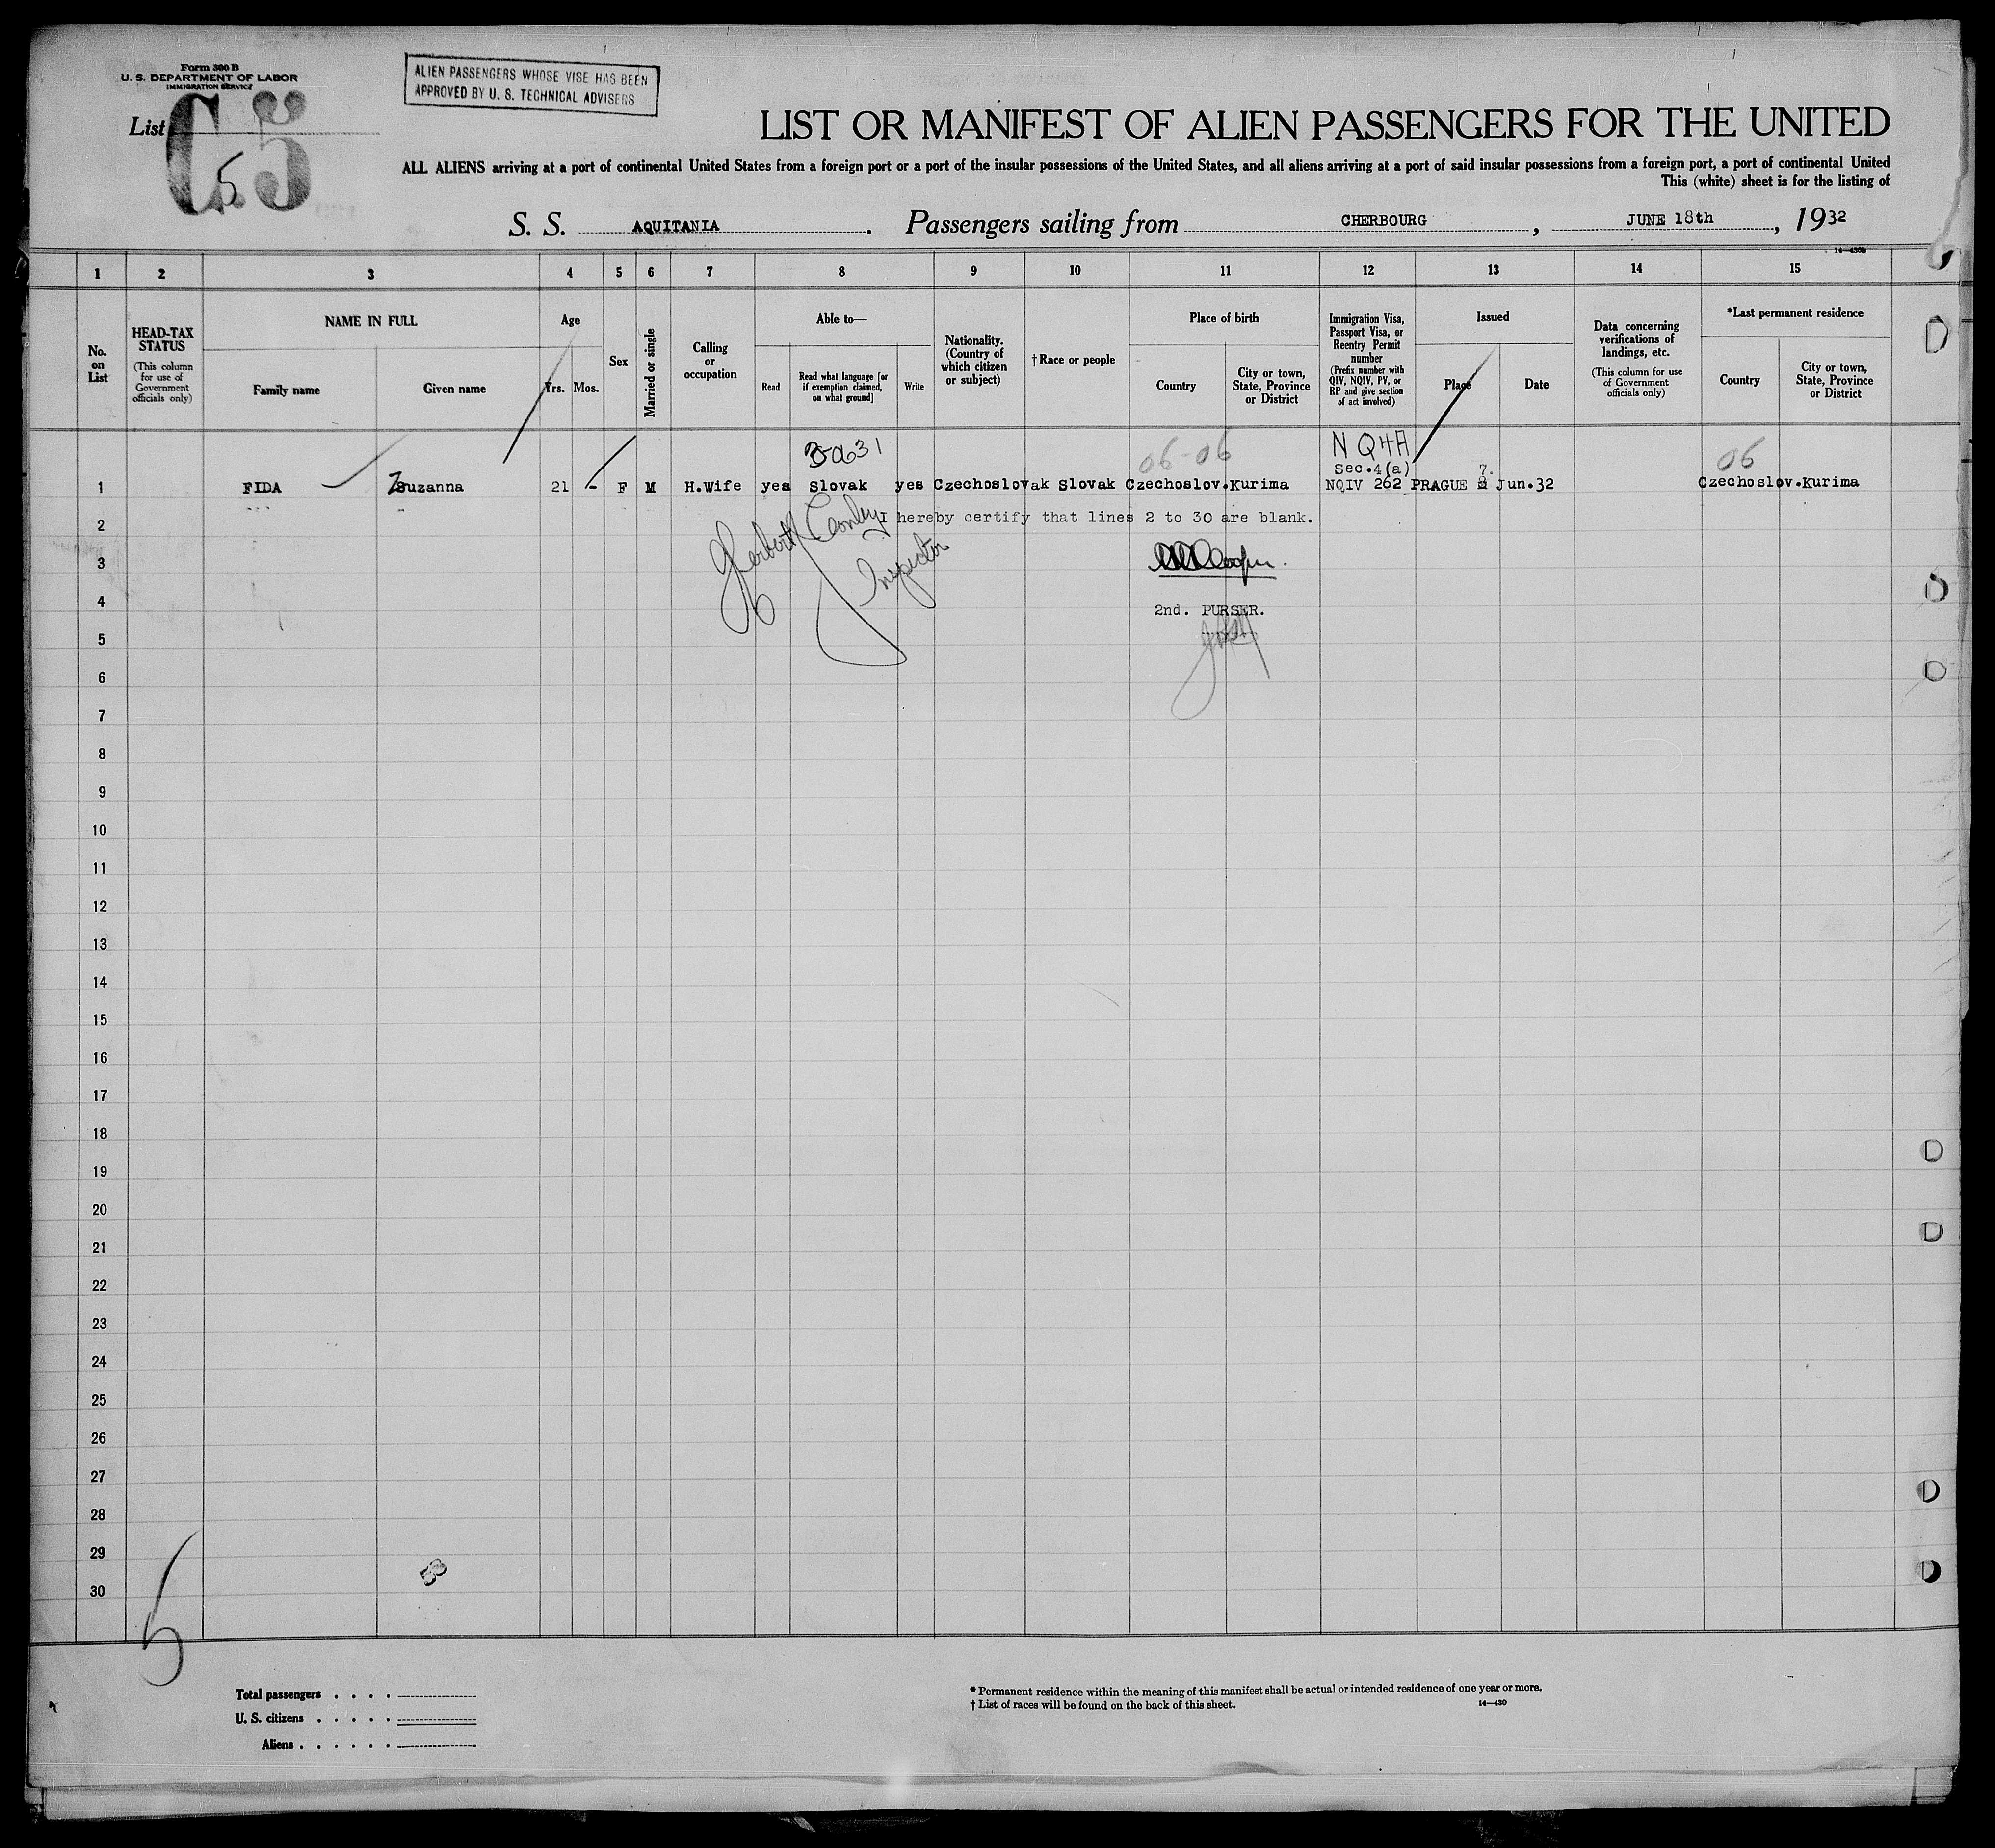 Form 500 B
U. S. DEPARTMENT OF LABOR
IMMIGRATION SERVICE
ALIEN PASSENGERS WHOSE VISE HAS BEEN
APPROVED BY U. S. TECHNICAL ADVISERS
List C5
5
LIST OR MANIFEST OF ALIEN PASSENGERS FOR THE UNITED
ALL ALIENS arriving at a port of continental United States from a foreign port or a port of the insular possessions of the United States, and all aliens arriving at a port of said insular possessions from a foreign port, a port of continental United
This (white) sheet is for the listing of
S. S. AQUITANIA. Passengers sailing from CHERBOURG, JUNE 18th, 1932
1 2 3 4 5 6 7 8 9 10 11 12 13 14 15
No. on List
HEAD-TAX STATUS
(This column for use of Government officials only)
NAME IN FULL
Family name
Given name
Age
Yrs. Mos.
Sex
Married or single
Calling or occupation
Able to—
Read
Read what language [or if exemption claimed, on what ground]
Write
Nationality. (Country of which citizen or subject)
†Race or people
Place of birth
Country
City or town, State, Province or District
Immigration Visa, Passport Visa, or Reentry Permit number
(Prefix number with QIV, NQIV, PV, or RP and give section of act involved)
Issued
Place
Date
Data concerning verifications of landings, etc.
(This column for use of Government officials only)
*Last permanent residence
Country
City or town, State, Province or District
06-06 NQ4A 06
Sec.4(a) 7.
1 FIDA Zuzanna 21 - F M H.Wife yes Slovak yes Czechoslovak Slovak Czechoslov. Kurima NQIV 262 PRAGUE Jun.32 Czechoslov. Kurima
2 I hereby certify that lines 2 to 30 are blank.
Inspector
3
4 2nd. PURSER.
5
6
7
8
9
10
11
12
13
14
15
16
17
18
19
20
21
22
23
24
25
26
27
28
29
30
5
Total passengers . . . .
U. S. citizens . . . . .
Aliens . . . . . .
* Permanent residence within the meaning of this manifest shall be actual or intended residence of one year or more.
† List of races will be found on the back of this sheet.
14—430